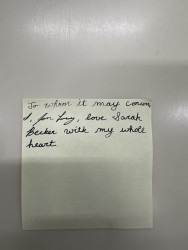 To whom it may conern
I, love Sarah
Becker with my whole
heart